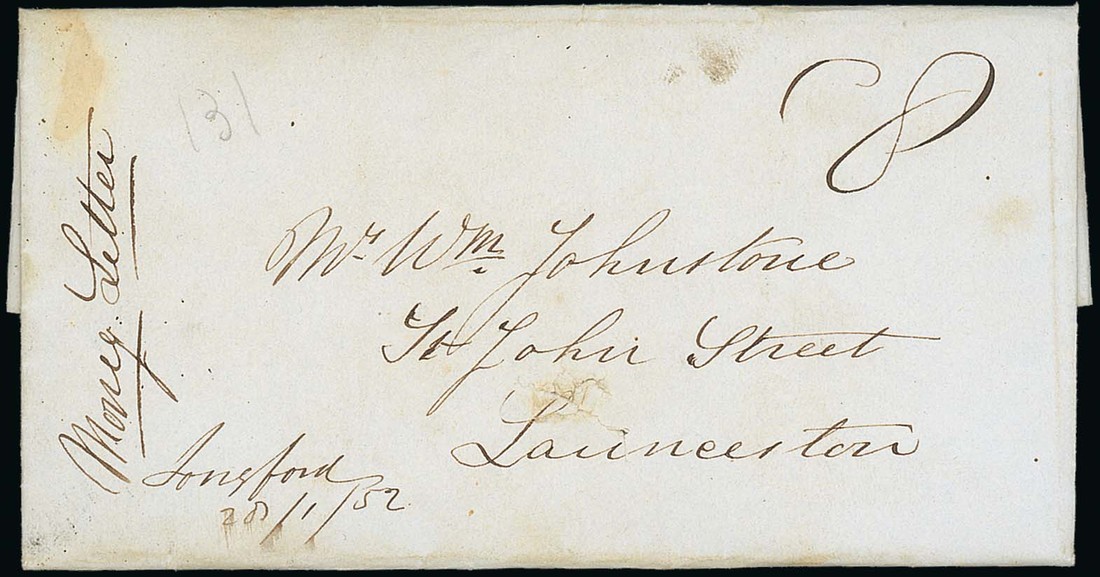 8
131
Money Letter
Mr. Wm. Johnstone
St John Street
Launceston
Longford
28/1/52